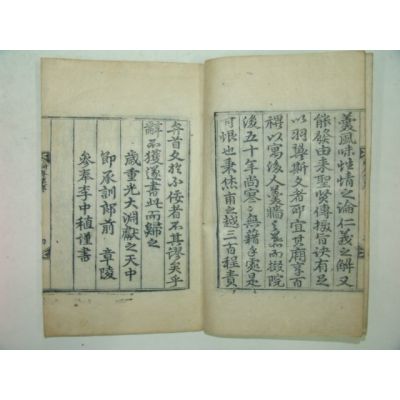 羹風味性情之論仁義之解又
能發由來聖賢傳授旨訣有足
以羽翼斯文者卽宜其廟享百
禩以寓後人羹墻之慕而掇院
後五十年尚寥寥無籍手處是
可恨也秉焦甫之越三百程責
弁首文於不佞者不其謬矣乎
辭而不獲遂書此而歸之
歲重光大淵獻之天中
節承訓郞前 章陵
參奉李中稙謹書